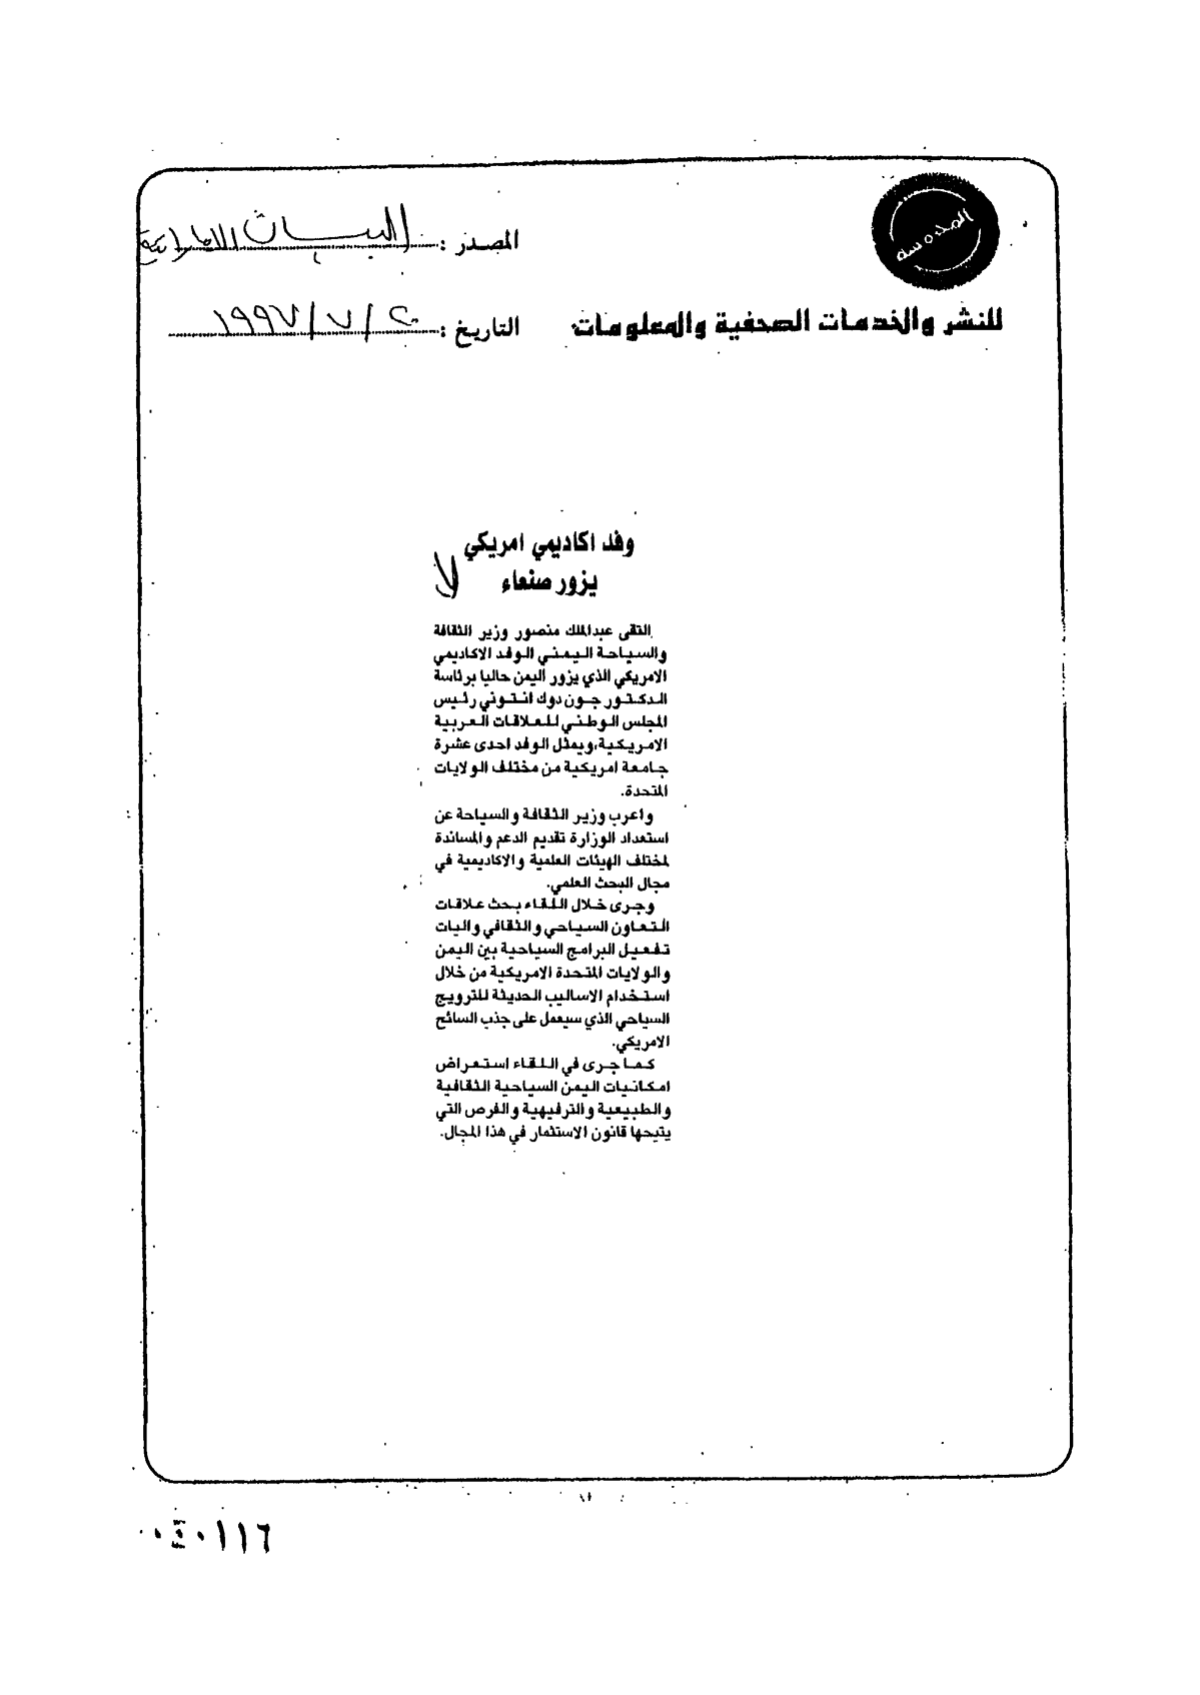 المدرسة
المصدر : البيان الاماراتية
للنشر والخدمات الصحفية والمعلومات
التاريخ : ٢٠ / ٧ / ١٩٩٧
وفد اكاديمي امريكي
يزور صنعاء
التقى عبدالملك منصور وزير الثقافة
والسياحة اليمني الوفد الاكاديمي
الامريكي الذي يزور اليمن حاليا برئاسة
الدكتور جون دوك انتوني رئيس
المجلس الوطني للعلاقات العربية
الامريكية،ويمثل الوفد احدى عشرة
جامعة امريكية من مختلف الولايات
المتحدة.
واعرب وزير الثقافة والسياحة عن
استعداد الوزارة تقديم الدعم والمساندة
لمختلف الهيئات العلمية والاكاديمية في
مجال البحث العلمي.
وجرى خلال اللقاء بحث علاقات
التعاون السياحي والثقافي واليات
تفعيل البرامج السياحية بين اليمن
والولايات المتحدة الامريكية من خلال
استخدام الاساليب الحديثة للترويج
السياحي الذي سيعمل على جذب السائح
الامريكي.
كما جرى في اللقاء استعراض
امكانيات اليمن السياحية الثقافية
والطبيعية والترفيهية والفرص التي
يتيحها قانون الاستثمار في هذا المجال.